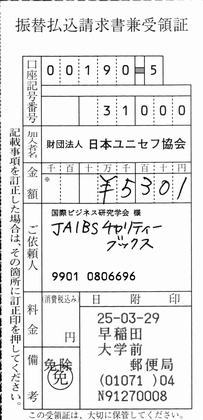 振替払込請求書兼受領証
口座記号番号
00190=5
31000
加入者名
財団法人 日本ユニセフ協会
金額
千百十万千百十円
※
¥5301
ご依頼人
国際ビジネス研究学会 様
JAIBSチャリティー
ブックス
9901 0806696
料金
(消費税込み)
円
日附印
25-03-29
早稲田
大学前
郵便局
(01071)04
N91270008
備考
免除
免
記載事項を訂正した場合は、その箇所に訂正印を押してください。
この受領証は、大切に保管してください。